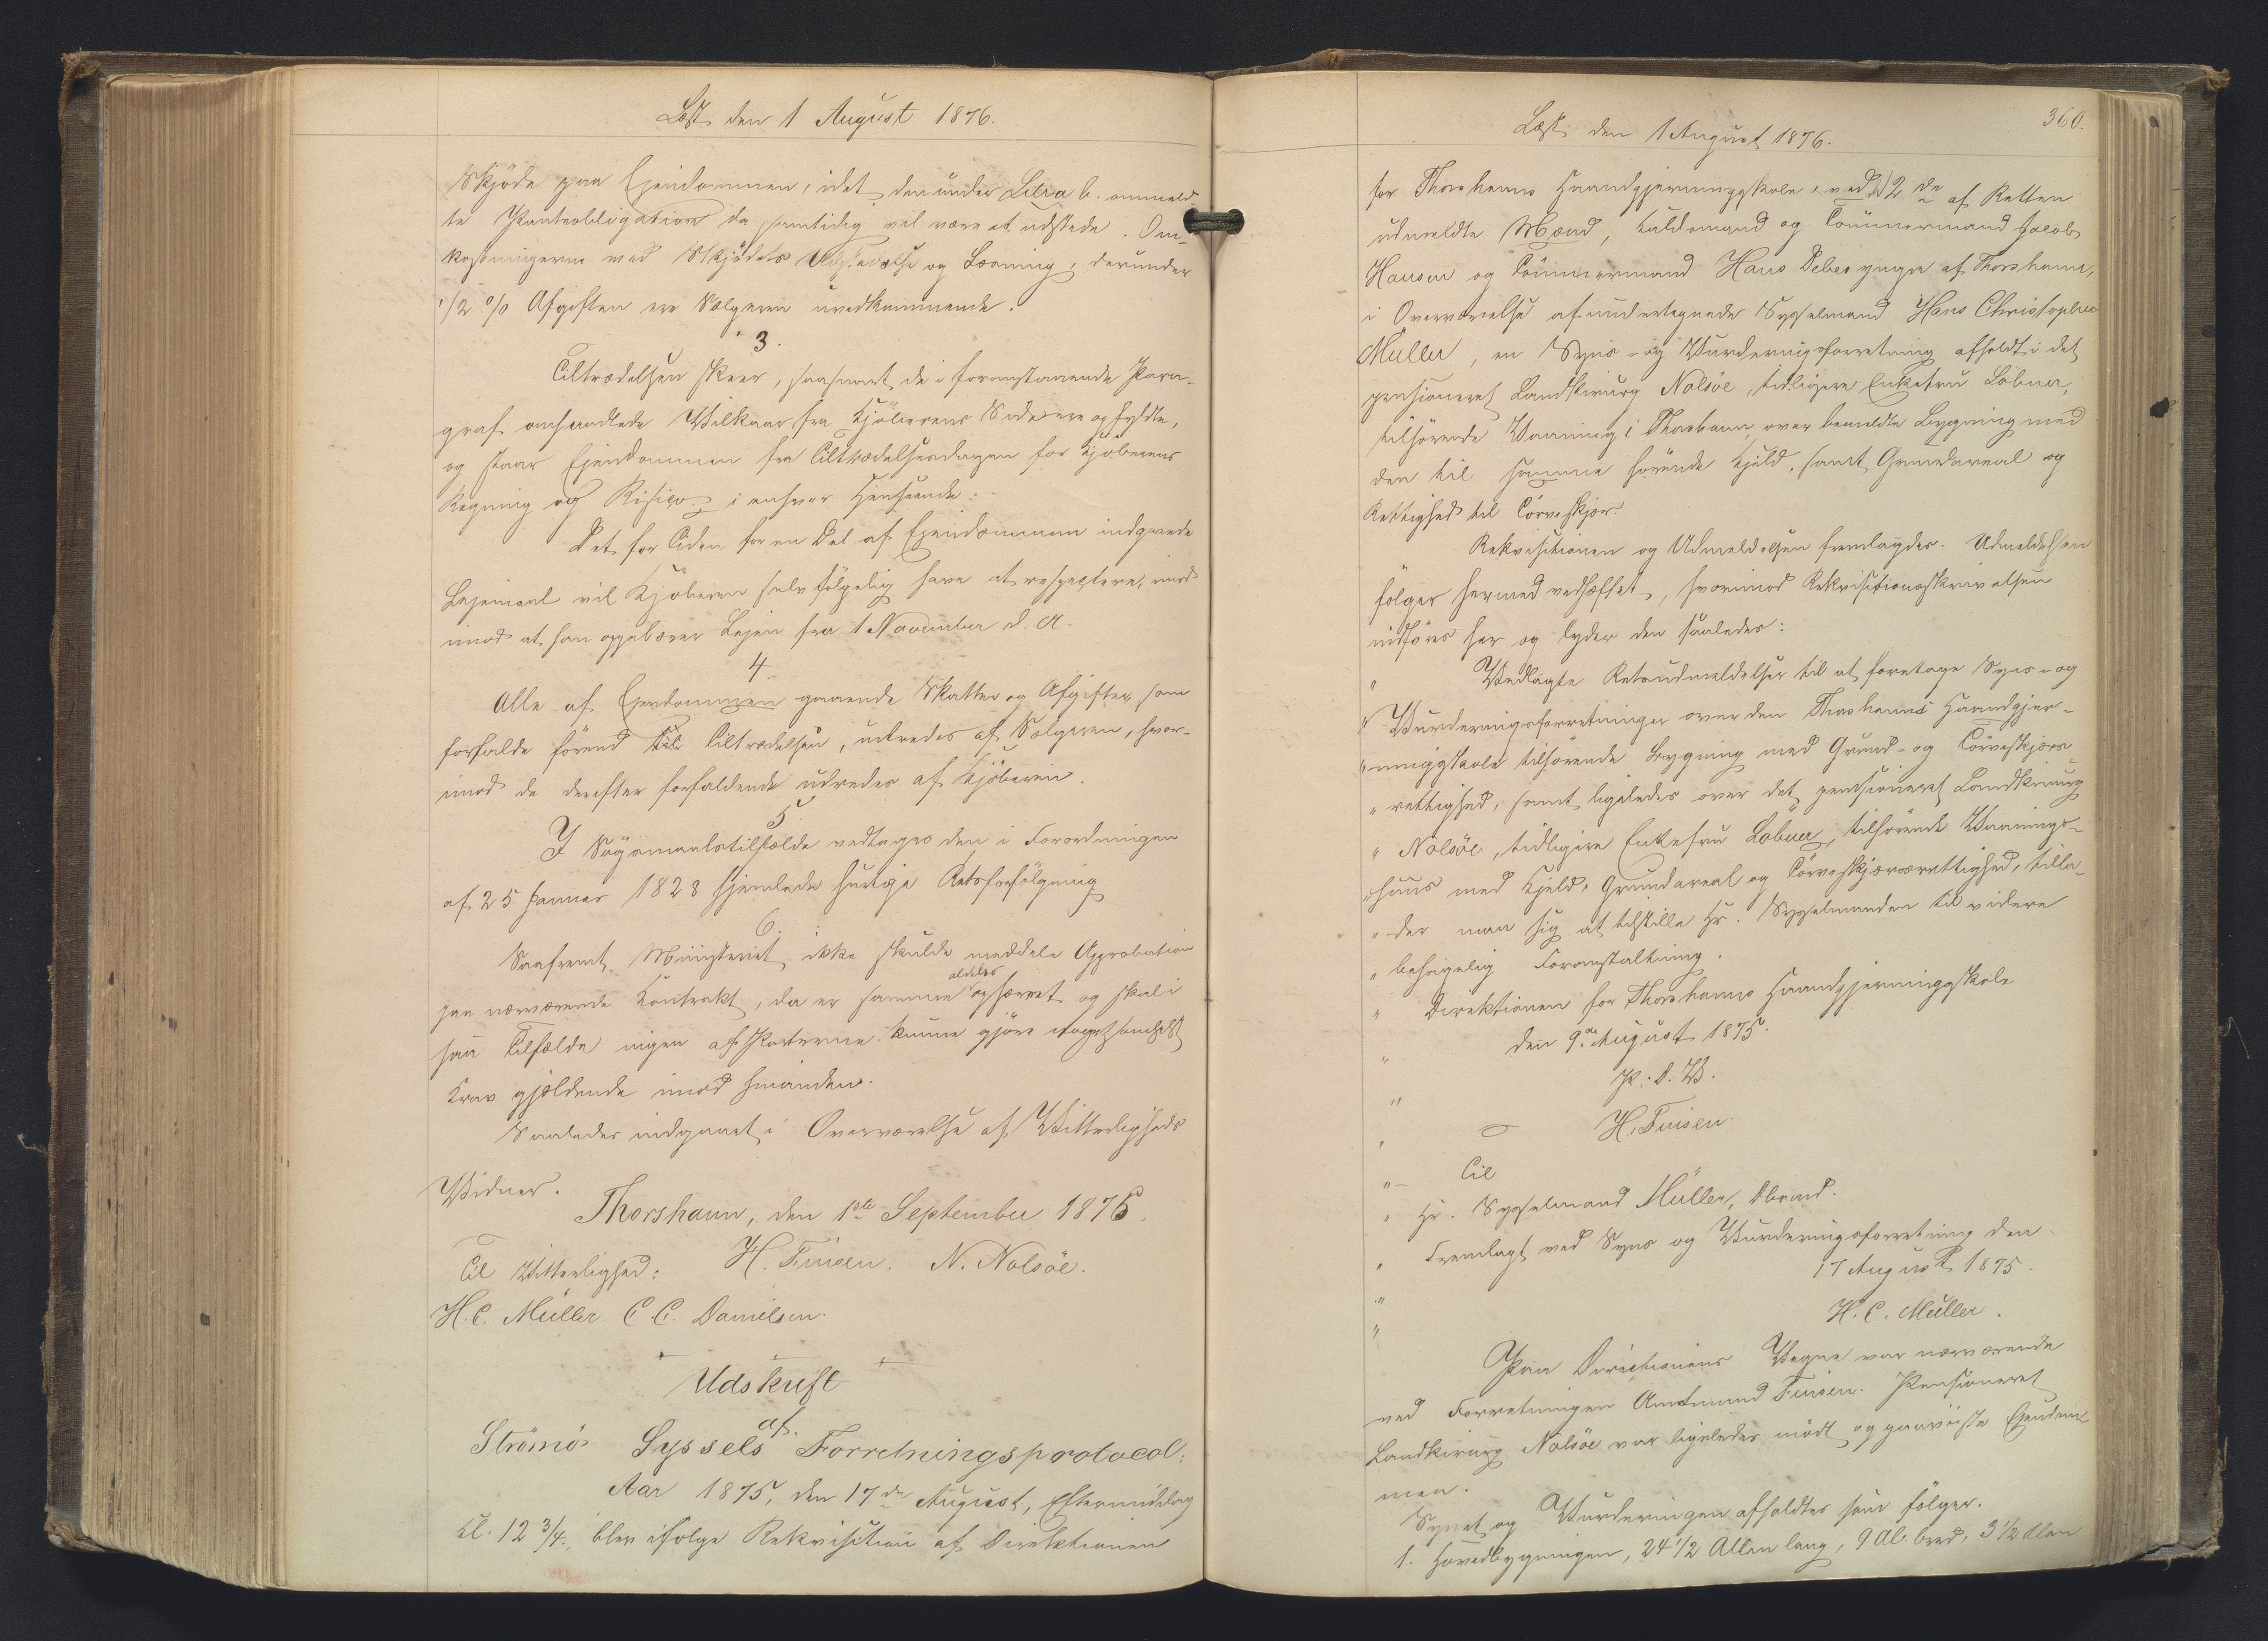 Læst den 1 August 1876.
Skjöde paa Ejendommen, idet den under Litra b. ommeld-
te Panteobligation da samtidig vil være at udstede. Om-
kostningerne med Skjödets Udstedelse og Læsning, derunder
1/2 % Afgiften ere Sælgeren uvedkommende.
3.
Tiltrædelsen skeer, saasnart de i foranstaaende Para-
graf omhandlede Vilkaar fra Kjöberens Side ere opfyldte,
og staar Ejendommen fra Tiltrædelsesdagen for Kjöberens
Regning og Risico i enhver Henseende.
Det for Tiden for en Del af Ejendommen indgaaede
Lejemaal vil Kjöberen selvfölgelig have at respectere, imod
imod at han oppebærer Lejen fra 1 November d. A.
4
Alle af Ejendommen gaaende Skatter og Afgifter, som
forfalde förend til Tiltrædelsen, udredes af Sælgeren, hvor-
imod de derefter forfaldende udredes af Kjöberen.
5
I Sögsmaalstilfælde vedtages den i Forordningen
af 25 Januar 1828 hjemlede hurtige Retsforfölgning
6.
Saafremt Ministeriet ikke skulde meddele Approbation
paa nærværende Kontrakt, da er samme aldeles ophævet og skal i
saa Tilfælde ingen af Parterne kunne gjöre nogetsomhelst
Krav gjældende imod hinanden.
Saaledes indgaaet i Overværelse af Vitterligheds
Vidner.
Thorshavn, den 1ste September 1876.
Til Vitterlighed: H. Finsen. N. Nolsöe.
H. C. Müller C. C. Danielsen.
Udskrift
af
Strömö Syssels Forretningsprotocol:
Aar 1875, den 17de August, Eftermiddag
Kl. 12 3/4, blev ifölge Rekvisition af Direktionen
360.
Læst den 1 August 1876.
for Thorshavns Haandgjerningsskole, ved 2de af Retten
udmeldte Mænd, Kaldsmand og Tömmermand Jacob
Hansen og Tömmermand Hans Debes yngre af Thorshavn,
i Overværelse af undertegnede Sysselmand Hans Christopher
Müller, en Syns- og Vurderingsforretning afholdt i det
pensioneret Landkirurg Nolsöe, tidligere Enkefru Löbner,
tilhörende Vaaning i Thorshavn, over bemeldte Bygning med
den til samme hörende Kjeld, samt Grundareal og
Rettighed til Törveskjær.
Rekvisitionen og Udmeldelsen fremlagdes. Udmeldelsen
fölger hermed vedhæftet, hvorimod Rekvisitionsskrivelsen
indföres her og lyder den saaledes:
" Vedlagte Retsudmeldelser til at foretage Syns- og
" Vurderingsforretninger over den Thorshavns Haandgjer-
" ningsskole tilhörende Bygning med Grund- og Törveskjærs
" rettighed, samt ligeledes over det pensioneret Landkirurg
" Nolsöe, tidligere Enkefru Löbner, tilhörende Vaanings-
" huus med Kjeld, Grundareal og Törveskjærsrettighed, tilla-
" der man sig at tilstille Hr. Sysselmanden til videre
" behagelig Foranstaltning.
" Direktionen for Thorshavns Haandgjerningsskole
" den 9de August 1875.
" P. D. V.
" H. Finsen.
" Til
" Hr. Sysselmand Müller, Dbrmd.
" Fremlagt ved Syns og Vurderingsforretning den
" 17 August 1875.
" H. C. Müller.
Paa Directionens Vegne var nærværende
ved Forretningen Amtmand Finsen. Pensioneret
Landkirurg Nolsöe var ligeledes mödt og paaviiste Ejendom-
men.
Synet og Vurderingen afholdtes som fölger.
1. Hovedbygningen, 24 1/2 Alen lang, 9 Al. bred, 3 1/2 Alen